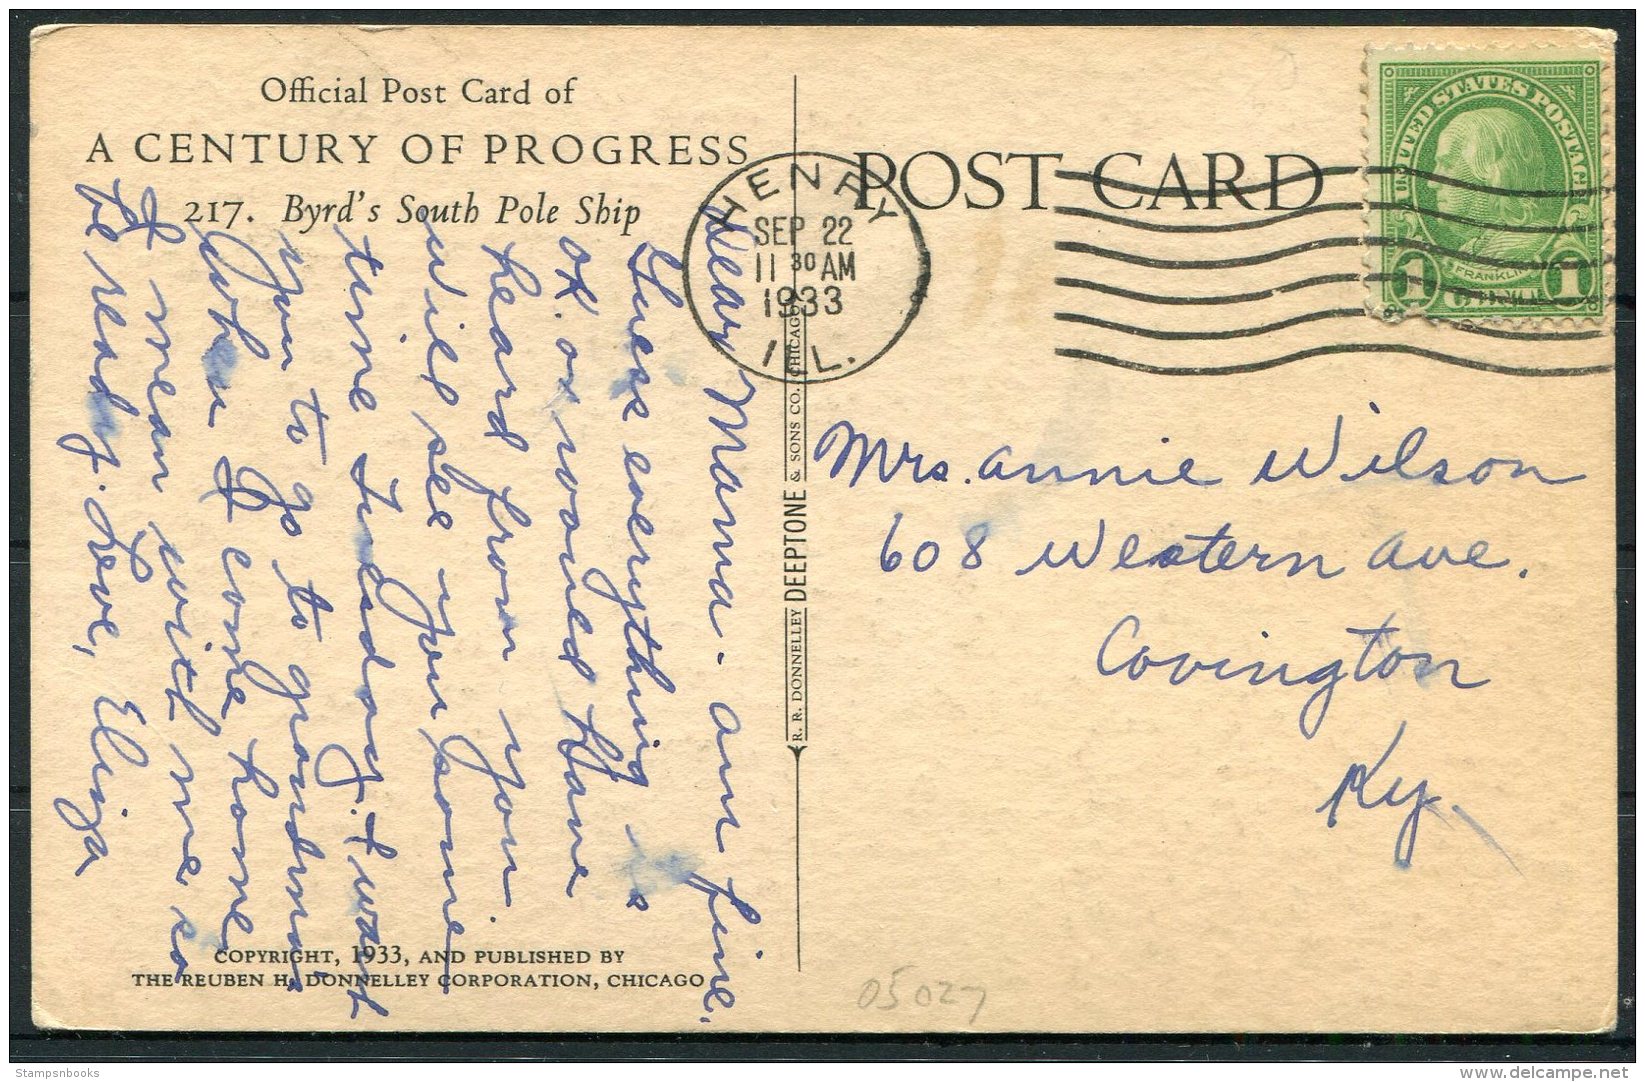 Official Post Card of
A CENTURY OF PROGRESS
217. Byrd's South Pole Ship
Dear Mama - am fine.
Guess everything is
OK. or would have
heard from you.
Will see you some
time Tuesday. I want
you to go to grandma's
when I come home
I mean with me so
be ready. Love, Eliza
COPYRIGHT, 1933, AND PUBLISHED BY
THE REUBEN H. DONNELLEY CORPORATION, CHICAGO
R. R. DONNELLEY DEEPTONE & SONS CO., CHICAGO
POST CARD
HENRY
SEP 22
11 30 AM
1933
ILL.
UNITED STATES POSTAGE
FRANKLIN
1 1
Mrs. Annie Wilson
608 Western Ave.
Covington
Ky.
05027
Stampsnbooks
www.delcampe.net